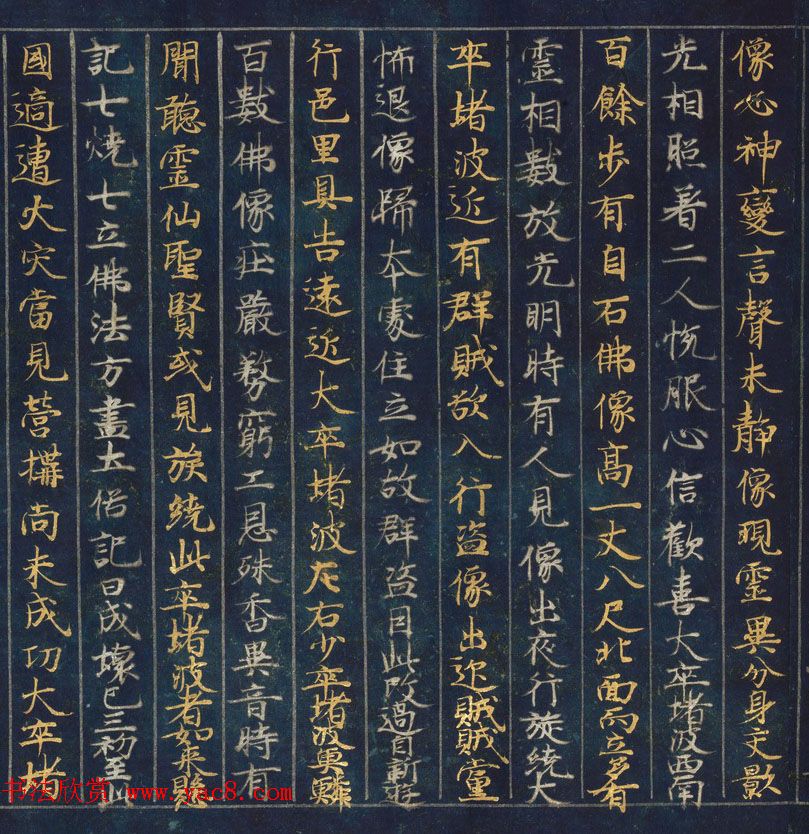 像心神變言聲未靜像現靈異分身交影
光相照著二人悅服心信歡喜大卒堵波西南
百餘步有自石佛像高一丈八尺北面而立多有
靈相數放光明時有人見像出夜行旋繞大
卒堵波近有群賊欲入行盜像出迎賊賊黨
怖退像歸本處住立如故群盜因此改過自新遊
行邑里具告遠近大卒堵波左右少卒堵波車鱗
百數佛像莊嚴務窮工思殊香異音時有
聞聽靈仙聖賢或見旋繞此卒堵波者如來懸
記七燒七立佛法方盡士俗記曰成壞已三初至此
國適遭火災當見營搆尚未成功大卒堵
书法欣赏 www.yac8.com